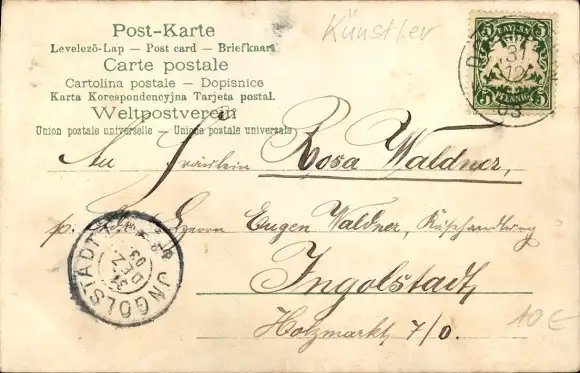 Post-Karte
Künstler
Levelező-Lap — Post card — Briefkaart
Carte postale
Cartolina postale — Dopisnice
Karta Korespondencyjna Tarjeta postal.
Weltpostverein
Union postale universelle — Unione postale universale
BAYERN
5 PFENNIG 5
31
12
03
An Fräulein Rosa Waldner,
p. Herrn Eugen Waldner, Käsehandlung
Ingolstadt,
Holzmarkt 7/0.
INGOLSTADT
31
DEZ
03.
10€